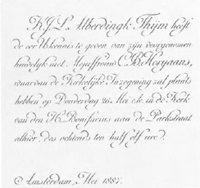 K.J.L. Alberdingk Thijm heeft
de eer U kennis te geven van zijn voorgenomen
huwelijk met Mejuffrouw C.B. Heijnans,
waarvan de Kerkelijke Inzegening zal plaats
hebben op Donderdag 26 Mei e.k. in de Kerk
van den H. Bonifacius aan de Parkstraat
alhier des ochtends ten half elf ure.
Amsterdam, Mei 1887.